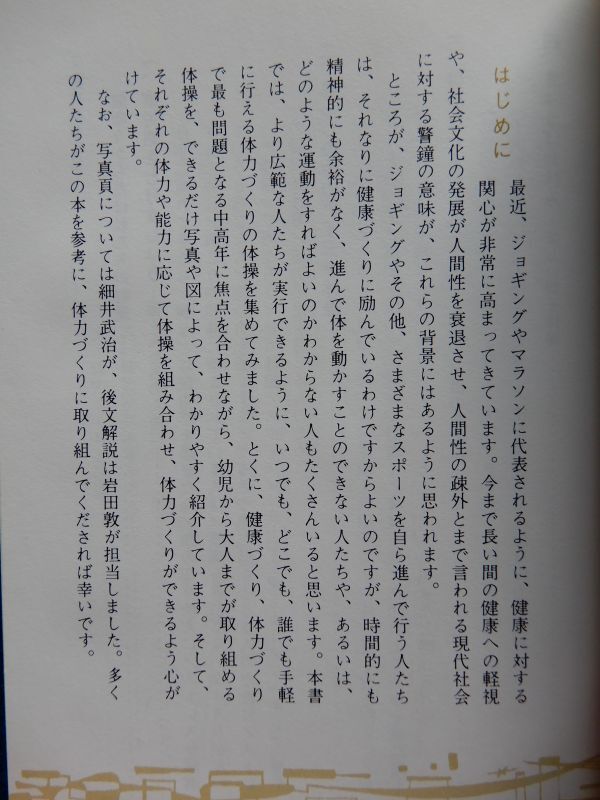 はじめに
最近、ジョギングやマラソンに代表されるように、健康に対する
関心が非常に高まってきています。今まで長い間の健康への軽視
や、社会文化の発展が人間性を衰退させ、人間性の疎外とまで言われる現代社会
に対する警鐘の意味が、これらの背景にはあるように思われます。
ところが、ジョギングやその他、さまざまなスポーツを自ら進んで行う人たち
は、それなりに健康づくりに励んでいるわけですからよいのですが、時間的にも
精神的にも余裕がなく、進んで体を動かすことのできない人たちや、あるいは、
どのような運動をすればよいのかわからない人もたくさんいると思います。本書
では、より広範な人たちが実行できるように、いつでも、どこでも、誰でも手軽
に行える体力づくりの体操を集めてみました。とくに、健康づくり、体力づくり
で最も問題となる中高年に焦点を合わせながら、幼児から大人までが取り組める
体操を、できるだけ写真や図によって、わかりやすく紹介しています。そして、
それぞれの体力や能力に応じて体操を組み合わせ、体力づくりができるよう心が
けています。
なお、写真頁については細井武治が、後文解説は岩田敦が担当しました。多く
の人たちがこの本を参考に、体力づくりに取り組んでくだされば幸いです。